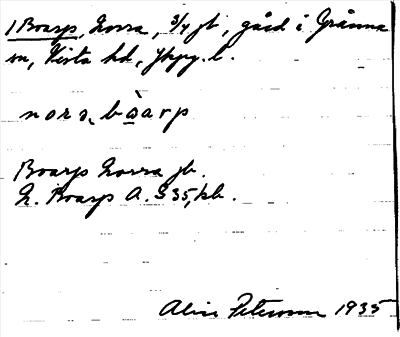 1 Boarp, Norra, 3/4 jb, gård i Gränna
sn, Vista hd, Jkpg. l.
nora, bòarp
Boarp Norra jb.
N. Boarp A. G 35, kb.
Alice Petersson 1935